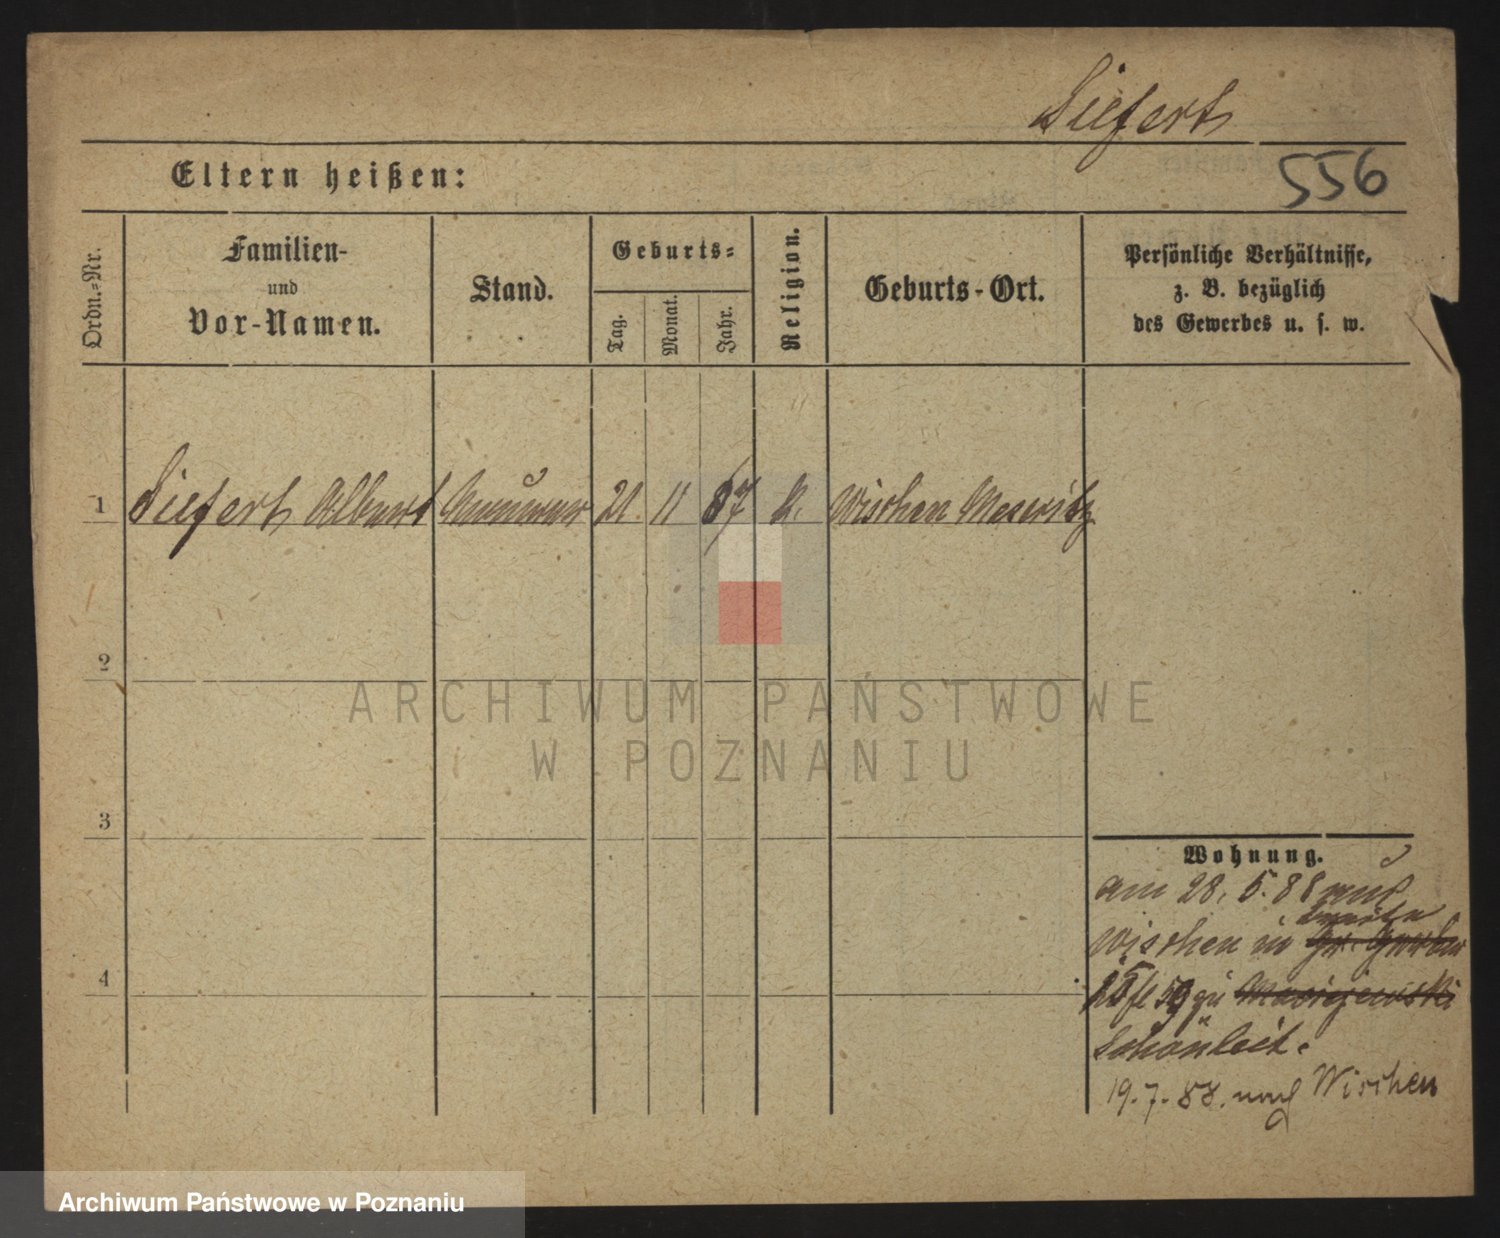 Siefert
Eltern heißen:
556
Ordn.-Nr.
Familien-
und
Vor-Namen.
Stand.
Geburts-
Tag.
Monat.
Jahr.
Religion.
Geburts-Ort.
Persönliche Verhältnisse,
z. B. bezüglich
des Gewerbes u. s. w.
1 Siefert Albert 21 11 67 K. Wischen Meseritz
2
3
4
Wohnung.
am 28. 5. 88 aus
Wischen in
zu Maciejewski
Schönleit.
19. 7. 88. nach Wischen
ARCHIWUM PAŃSTWOWE
W POZNANIU
Archiwum Państwowe w Poznaniu